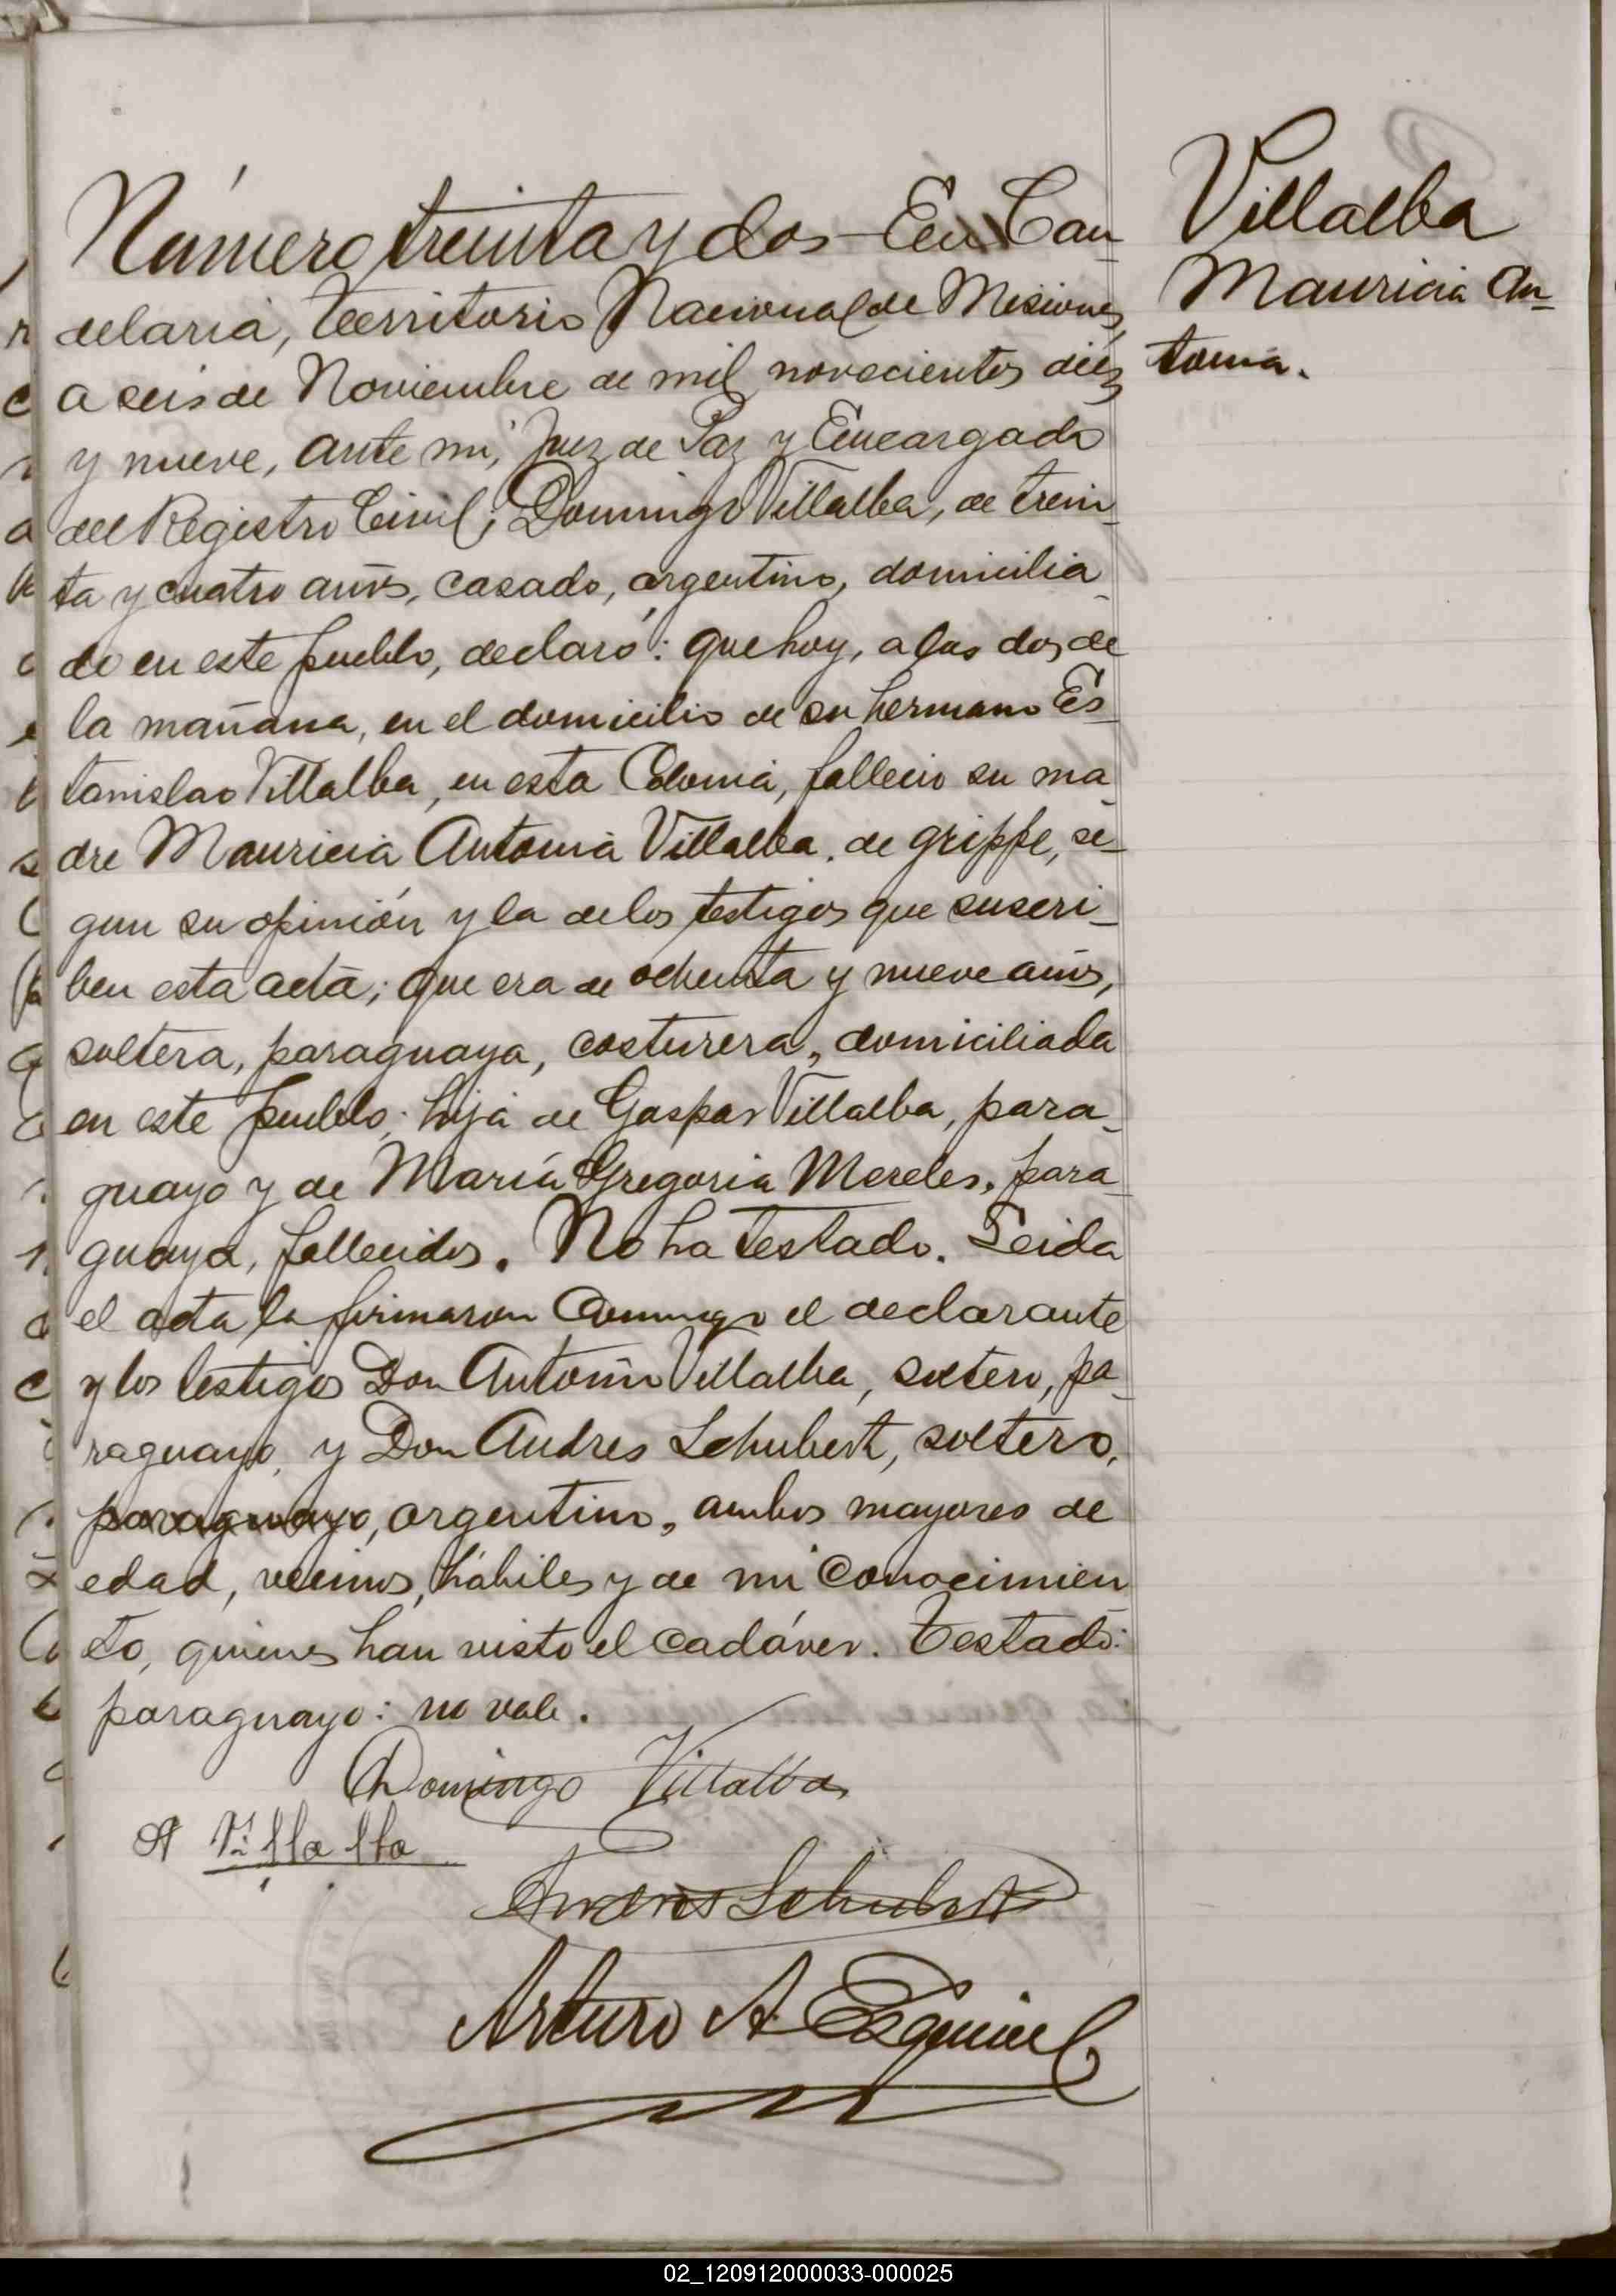 Villalba
Mauricia An-
tonia.
Número treinta y dos - En Can-
delaria, Territorio Nacional de Misiones,
a seis de Noviembre de mil novecientos diez
y nueve, ante mi, Juez de Paz y Encargado
del Registro Civil; Domingo Villalba, de trein-
ta y cuatro años, casado, argentino, domicilia-
do en este pueblo, declaró: que hoy, a las dos de
la mañana, en el domicilio de su hermano Es-
tanislao Villalba, en esta Colonia, fallecio su ma-
dre Mauricia Antonia Villalba, de grippe, se-
gun su opinión y la de los testigos que suscri-
ben esta acta; que era de ochenta y nueve años,
soltera, paraguaya, costurera, domiciliada
en este pueblo; hija de Gaspar Villalba, para-
guayo y de María Gregoria Mereles, para-
guaya, fallecidos. No ha testado. Leida
el acta la firmaron conmigo el declarante
y los testigos Don Antonio Villalba, soltero, pa-
raguayo, y Don Andres Schubert, soltero,
paraguayo, argentino, ambos mayores de
edad, vecinos, hábiles y de mi conocimien
to, quienes han visto el cadáver. Testado:
paraguayo: no vale.
Domingo Villalba
A Villalba
Andres Schubert
Arturo A. Esquivel
02_120912000033-000025